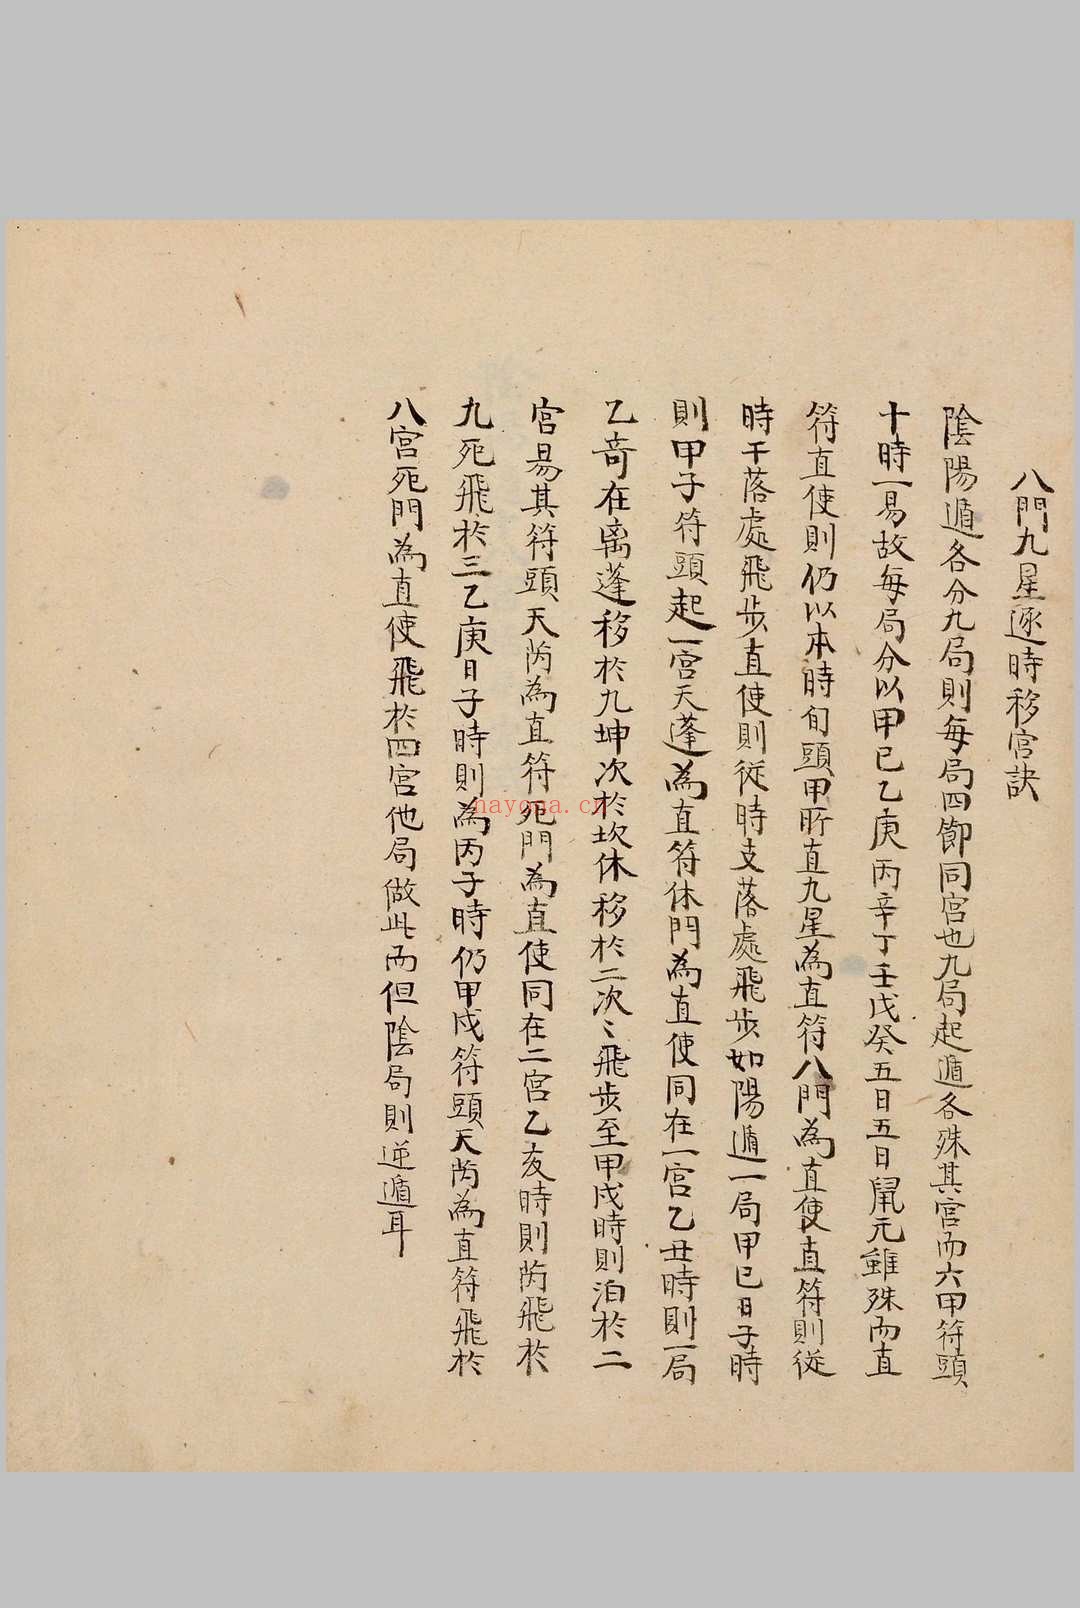 八門九星逐時移宮訣
陰陽遁各分九局則每局四節同宮也九局起遁各殊其宮而六甲符頭
十時一易故每局分以甲已乙庚丙辛丁壬戊癸五日五日鼠元雖殊而直
符直使則仍以本時旬頭甲所直九星為直符八門為直使直符則從
時干落處飛步直使則從時支落處飛步如陽遁一局甲已日子時
則甲子符頭起一宮天蓬為直符休門為直使同在一宮乙丑時則一局
乙奇在离蓬移於九坤次於坎休移於二次〻飛步至甲戌時則泊於二
宮易其符頭天芮為直符死門為直使同在二宮乙亥時則芮飛於
九死飛於三乙庚日子時則為丙子時仍甲戌符頭天芮為直符飛於
八宮死門為直使飛於四宮他局倣此而但陰局則逆遁耳
nayona.cn